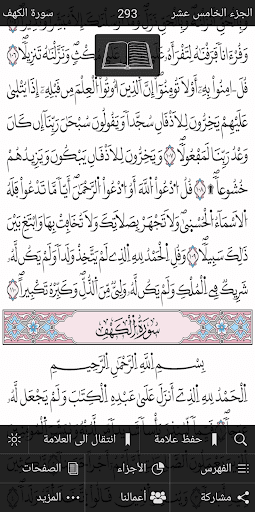 سورة الكهف 293 الجزء الخامس عشر
وَقُرْءَانًا فَرَقْنَٰهُ لِتَقْرَأَهُۥ عَلَى ٱلنَّاسِ عَلَىٰ مُكْثٍ وَنَزَّلْنَٰهُ تَنزِيلًا ۝١٠٦
قُلْ ءَامِنُوا۟ بِهِۦٓ أَوْ لَا تُؤْمِنُوٓا۟ إِنَّ ٱلَّذِينَ أُوتُوا۟ ٱلْعِلْمَ مِن قَبْلِهِۦٓ إِذَا يُتْلَىٰ
عَلَيْهِمْ يَخِرُّونَ لِلْأَذْقَانِ سُجَّدًا ۝١٠٧ وَيَقُولُونَ سُبْحَٰنَ رَبِّنَآ إِن كَانَ
وَعْدُ رَبِّنَا لَمَفْعُولًا ۝١٠٨ وَيَخِرُّونَ لِلْأَذْقَانِ يَبْكُونَ وَيَزِيدُهُمْ
خُشُوعًا ۩ ۝١٠٩ قُلِ ٱدْعُوا۟ ٱللَّهَ أَوِ ٱدْعُوا۟ ٱلرَّحْمَٰنَ أَيًّا مَّا تَدْعُوا۟ فَلَهُ
ٱلْأَسْمَآءُ ٱلْحُسْنَىٰ وَلَا تَجْهَرْ بِصَلَاتِكَ وَلَا تُخَافِتْ بِهَا وَٱبْتَغِ بَيْنَ
ذَٰلِكَ سَبِيلًا ۝١١٠ وَقُلِ ٱلْحَمْدُ لِلَّهِ ٱلَّذِى لَمْ يَتَّخِذْ وَلَدًا وَلَمْ يَكُن لَّهُۥ
شَرِيكٌ فِى ٱلْمُلْكِ وَلَمْ يَكُن لَّهُۥ وَلِىٌّ مِّنَ ٱلذُّلِّ وَكَبِّرْهُ تَكْبِيرًۢا ۝١١١
سُورَةُ الْكَهْفِ
بِسْمِ ٱللَّهِ ٱلرَّحْمَٰنِ ٱلرَّحِيمِ
ٱلْحَمْدُ لِلَّهِ ٱلَّذِىٓ أَنزَلَ عَلَىٰ عَبْدِهِ ٱلْكِتَٰبَ وَلَمْ يَجْعَل لَّهُۥ
حفظ علامة انتقال إلى العلامة
الفهرس الأجزاء الصفحات
مشاركة أعمالنا المزيد